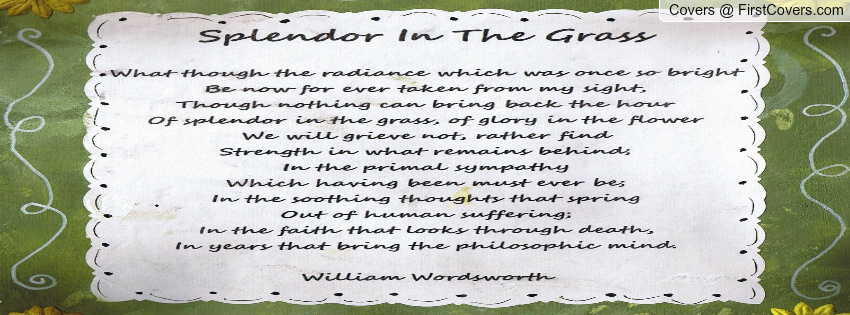 Covers @ FirstCovers.com
Splendor In The Grass
What though the radiance which was once so bright
Be now for ever taken from my sight,
Though nothing can bring back the hour
Of splendor in the grass, of glory in the flower
We will grieve not, rather find
Strength in what remains behind;
In the primal sympathy
Which having been must ever be;
In the soothing thoughts that spring
Out of human suffering;
In the faith that looks through death,
In years that bring the philosophic mind.
William Wordsworth